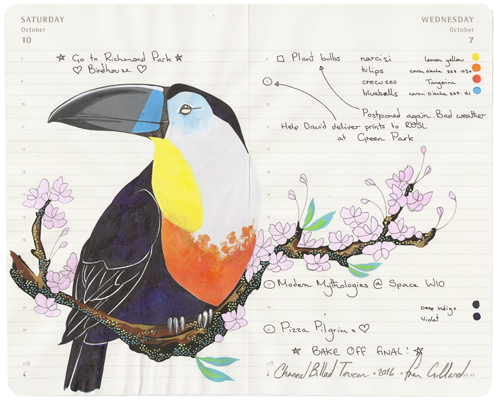 SATURDAY
October
10
☆ Go to Richmond Park ☆
♡ Birdhouse ♡
WEDNESDAY
October
7
Plant bulbs
narcizi lemon yellow
tulips
crocuses Tangerine
bluebells
Postponed again. Bad weather
Help David deliver prints to
at Green Park
Modern Mythologies @ Space W10
Deep Indigo
Violet
Pizza Pilgrims ♡
☆ BAKE OFF FINAL! ☆
Channel Billed Toucan · 2016 ·